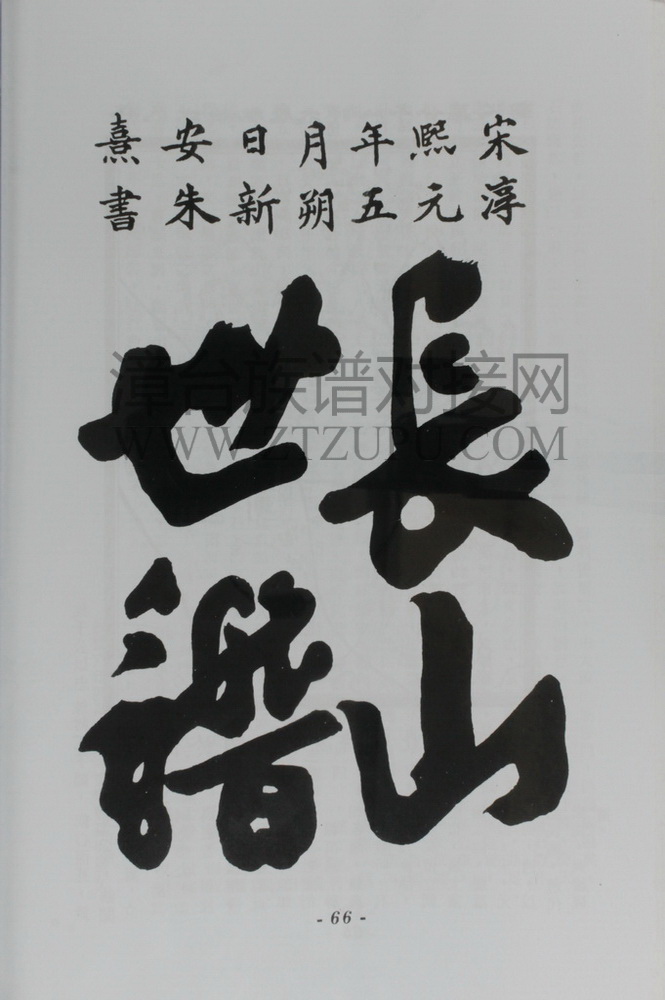 宋淳
熙元
年五
月朔
日新
安朱
熹書
長山
世譜
漳台族谱对接网
WWW.ZTZUPU.COM
- 66 -